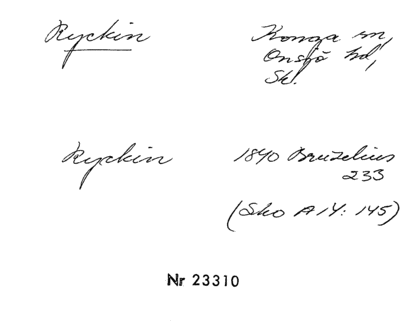 Ryckin Konga sn,
Onsjö hd,
Sk.
Ryckin 1840 Bruzelius
233
(Sko A 14: 145)
Nr 23310